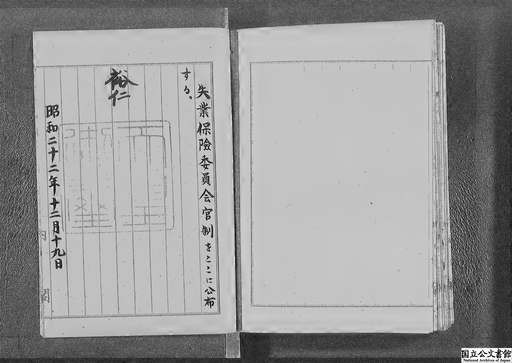 失業保險委員会官制をここに公布
する。
裕仁
昭和二十二年十二月十九日
内閣
国立公文書館
National Archives of Japan